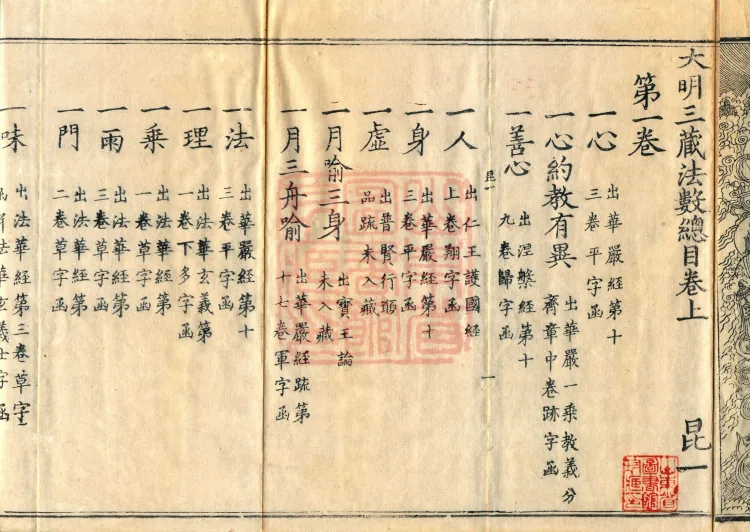 大明三藏法數總目卷上 昆一
第一卷
一心 出華嚴經第十三卷平字函
一心約教有異 出華嚴一乘教義分齊章中卷跡字函
一善心 出涅槃經第十九卷歸字函
昆一 一
一人 出仁王護國經上卷翔字函
二身 出華嚴經第十三卷平字函
一虛 出普賢行願品疏未入藏
二月喻三身 出寶王論未入藏
一月三舟喻 出華嚴經疏第十七卷軍字函
一法 出華嚴經第十三卷平字函
一理 出法華玄義第一卷下多字函
一乘 出法華經第一卷草字函
一雨 出法華經第三卷草字函
一門 出法華經第二卷草字函
一味 出法華經第三卷草字